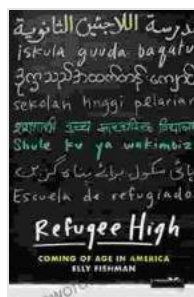 مدرسة اللاجئين الثانوية
iskula guuda baqatu
sekolah tinggi pelarian
Shule ku ya wakimbiz
پائی سکول برائے پناہ گزین
Escuela de refugiado
Refugee High
COMING OF AGE IN AMERICA
ELLY FISHMAN